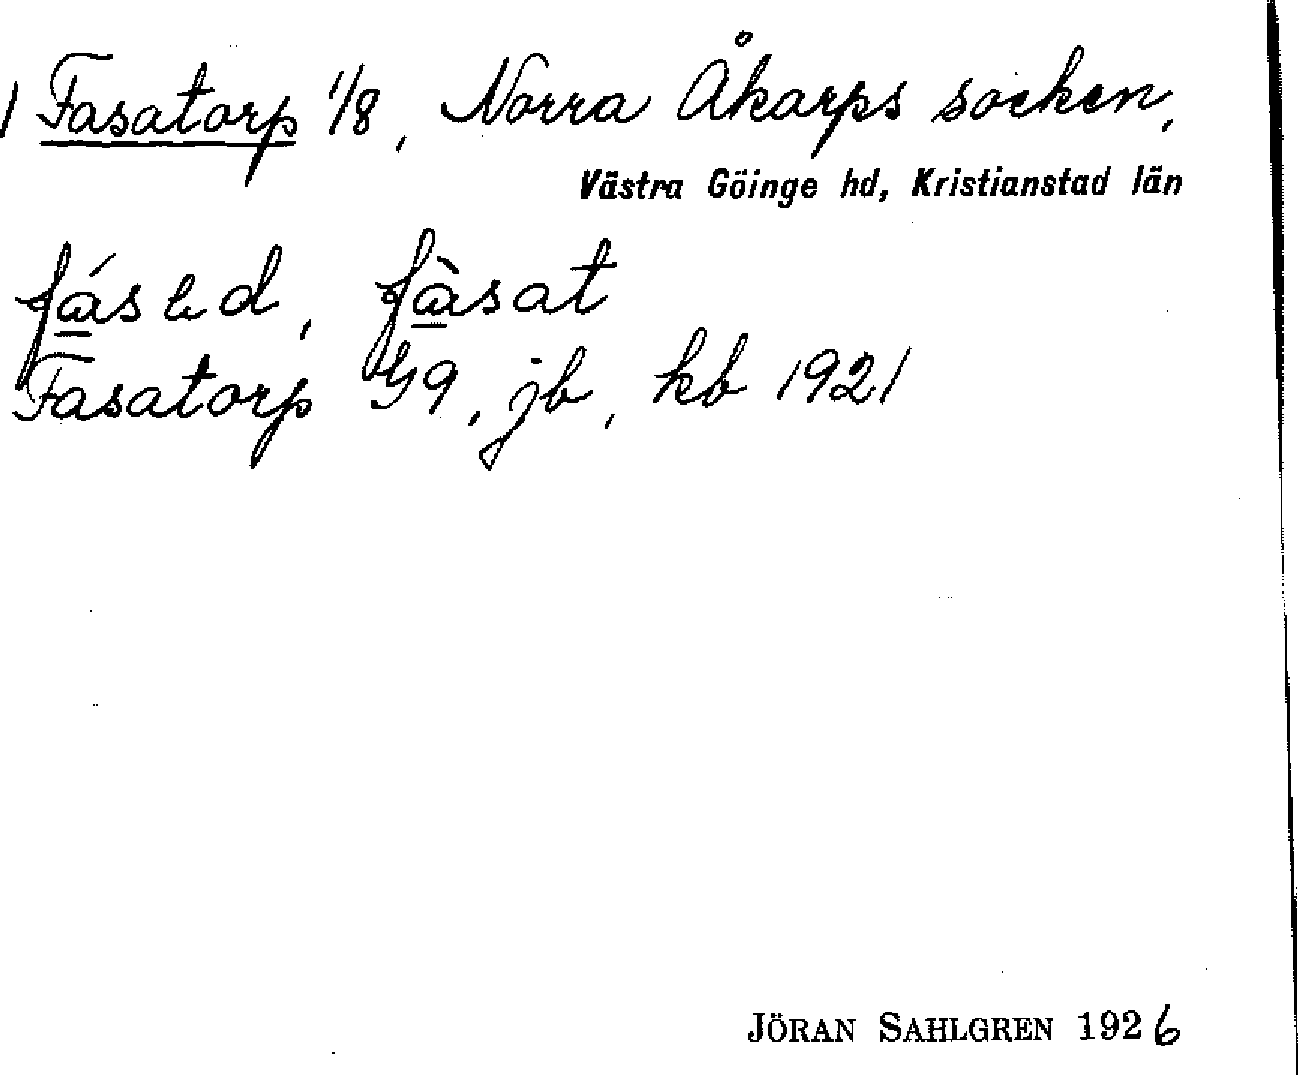 Fasatorp 1/8, Norra Åkarps socken,
Västra Göinge hd, Kristianstad län
fàsat
Fasatorp G9, jb, kb 1921
JÖRAN SAHLGREN 1926